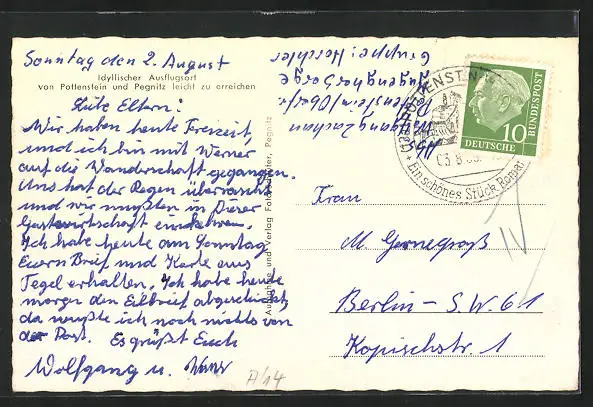 Sonntag den 2. August
Idyllischer Ausflugsort
von Pottenstein und Pegnitz leicht zu erreichen
Liebe Eltern!
Wir haben heute Freizeit,
und ich bin mit Werner
auf die Wanderschaft gegangen.
Uns hat der Regen überrascht
und wir mußten in dieser
Gastwirtschaft einkehren.
Ich habe heute am Sonntag
Euern Brief und Karte aus
Tegel erhalten. Ich habe heute
morgen den Eilbrief abgeschickt,
da wußte ich noch nichts von
der Post. Es grüßt Euch
Wolfgang u. Werner
A/14
Aufnahme und Verlag Pegnitz
Abs. Wolfgang Zachau
Pottenstein/Oberfr.
Jugendherberge
Gruppe: Horschler
POTTENSTEIN
Ein schönes Stück Bayern
10
DEUTSCHE
BUNDESPOST
Frau
M. Gernegroß
IV
Berlin - S.W. 61
Kopischstr. 1